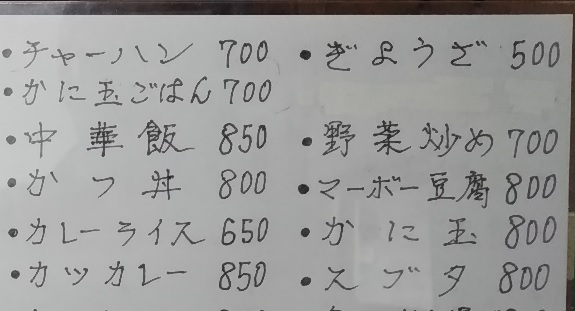 ・チャーハン 700
・かに玉ごはん 700
・中華飯 850
・かつ丼 800
・カレーライス 650
・カツカレー 850
・ぎょうざ 500
・野菜炒め 700
・マーボー豆腐 800
・かに玉 800
・スブタ 800